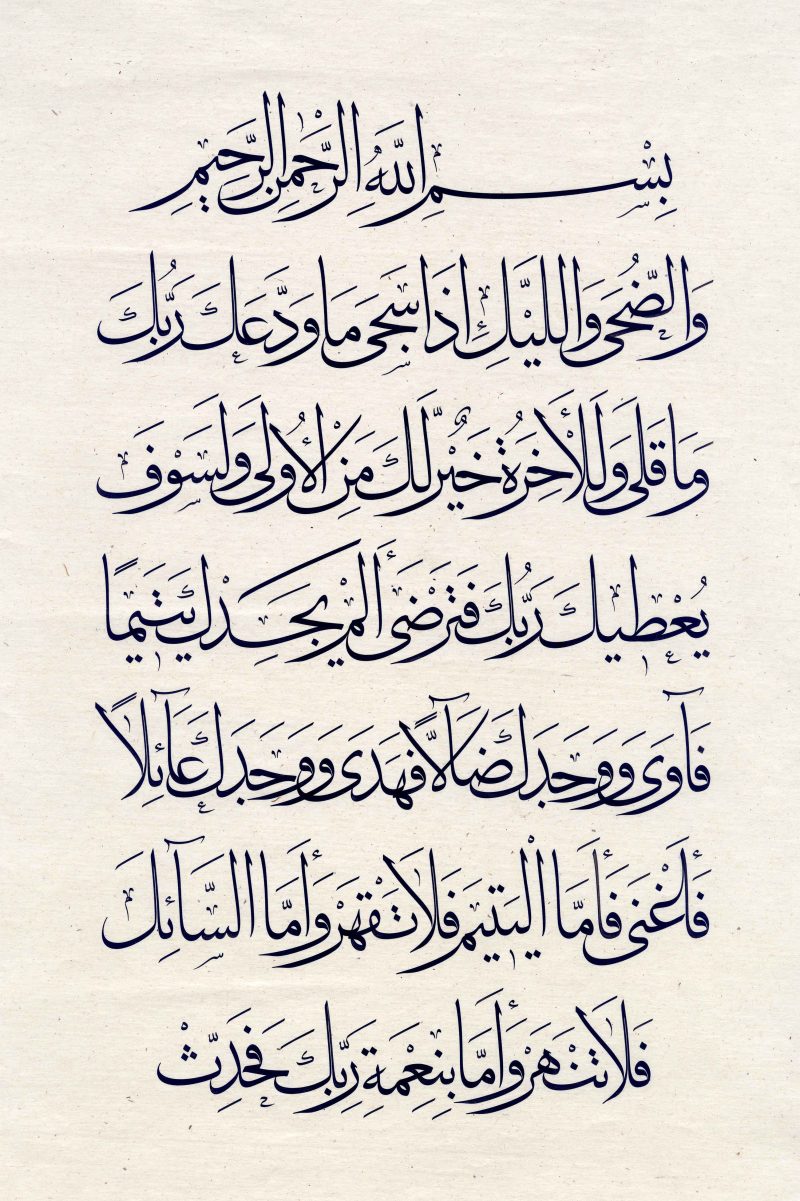 بِسْمِ اللَّهِ الرَّحْمٰنِ الرَّحِيمِ
وَالضُّحَى وَاللَّيْلِ إِذَا سَجَى مَا وَدَّعَكَ رَبُّكَ
وَمَا قَلَى وَلَلْأَخِرَةُ خَيْرٌ لَّكَ مِنَ الْأُولَى وَلَسَوْفَ
يُعْطِيكَ رَبُّكَ فَتَرْضَى أَلَمْ يَجِدْكَ يَتِيمًا
فَآوَى وَوَجَدَكَ ضَآلًّا فَهَدَى وَوَجَدَكَ عَآئِلًا
فَأَغْنَى فَأَمَّا الْيَتِيمَ فَلَا تَقْهَرْ وَأَمَّا السَّآئِلَ
فَلَا تَنْهَرْ وَأَمَّا بِنِعْمَةِ رَبِّكَ فَحَدِّثْ